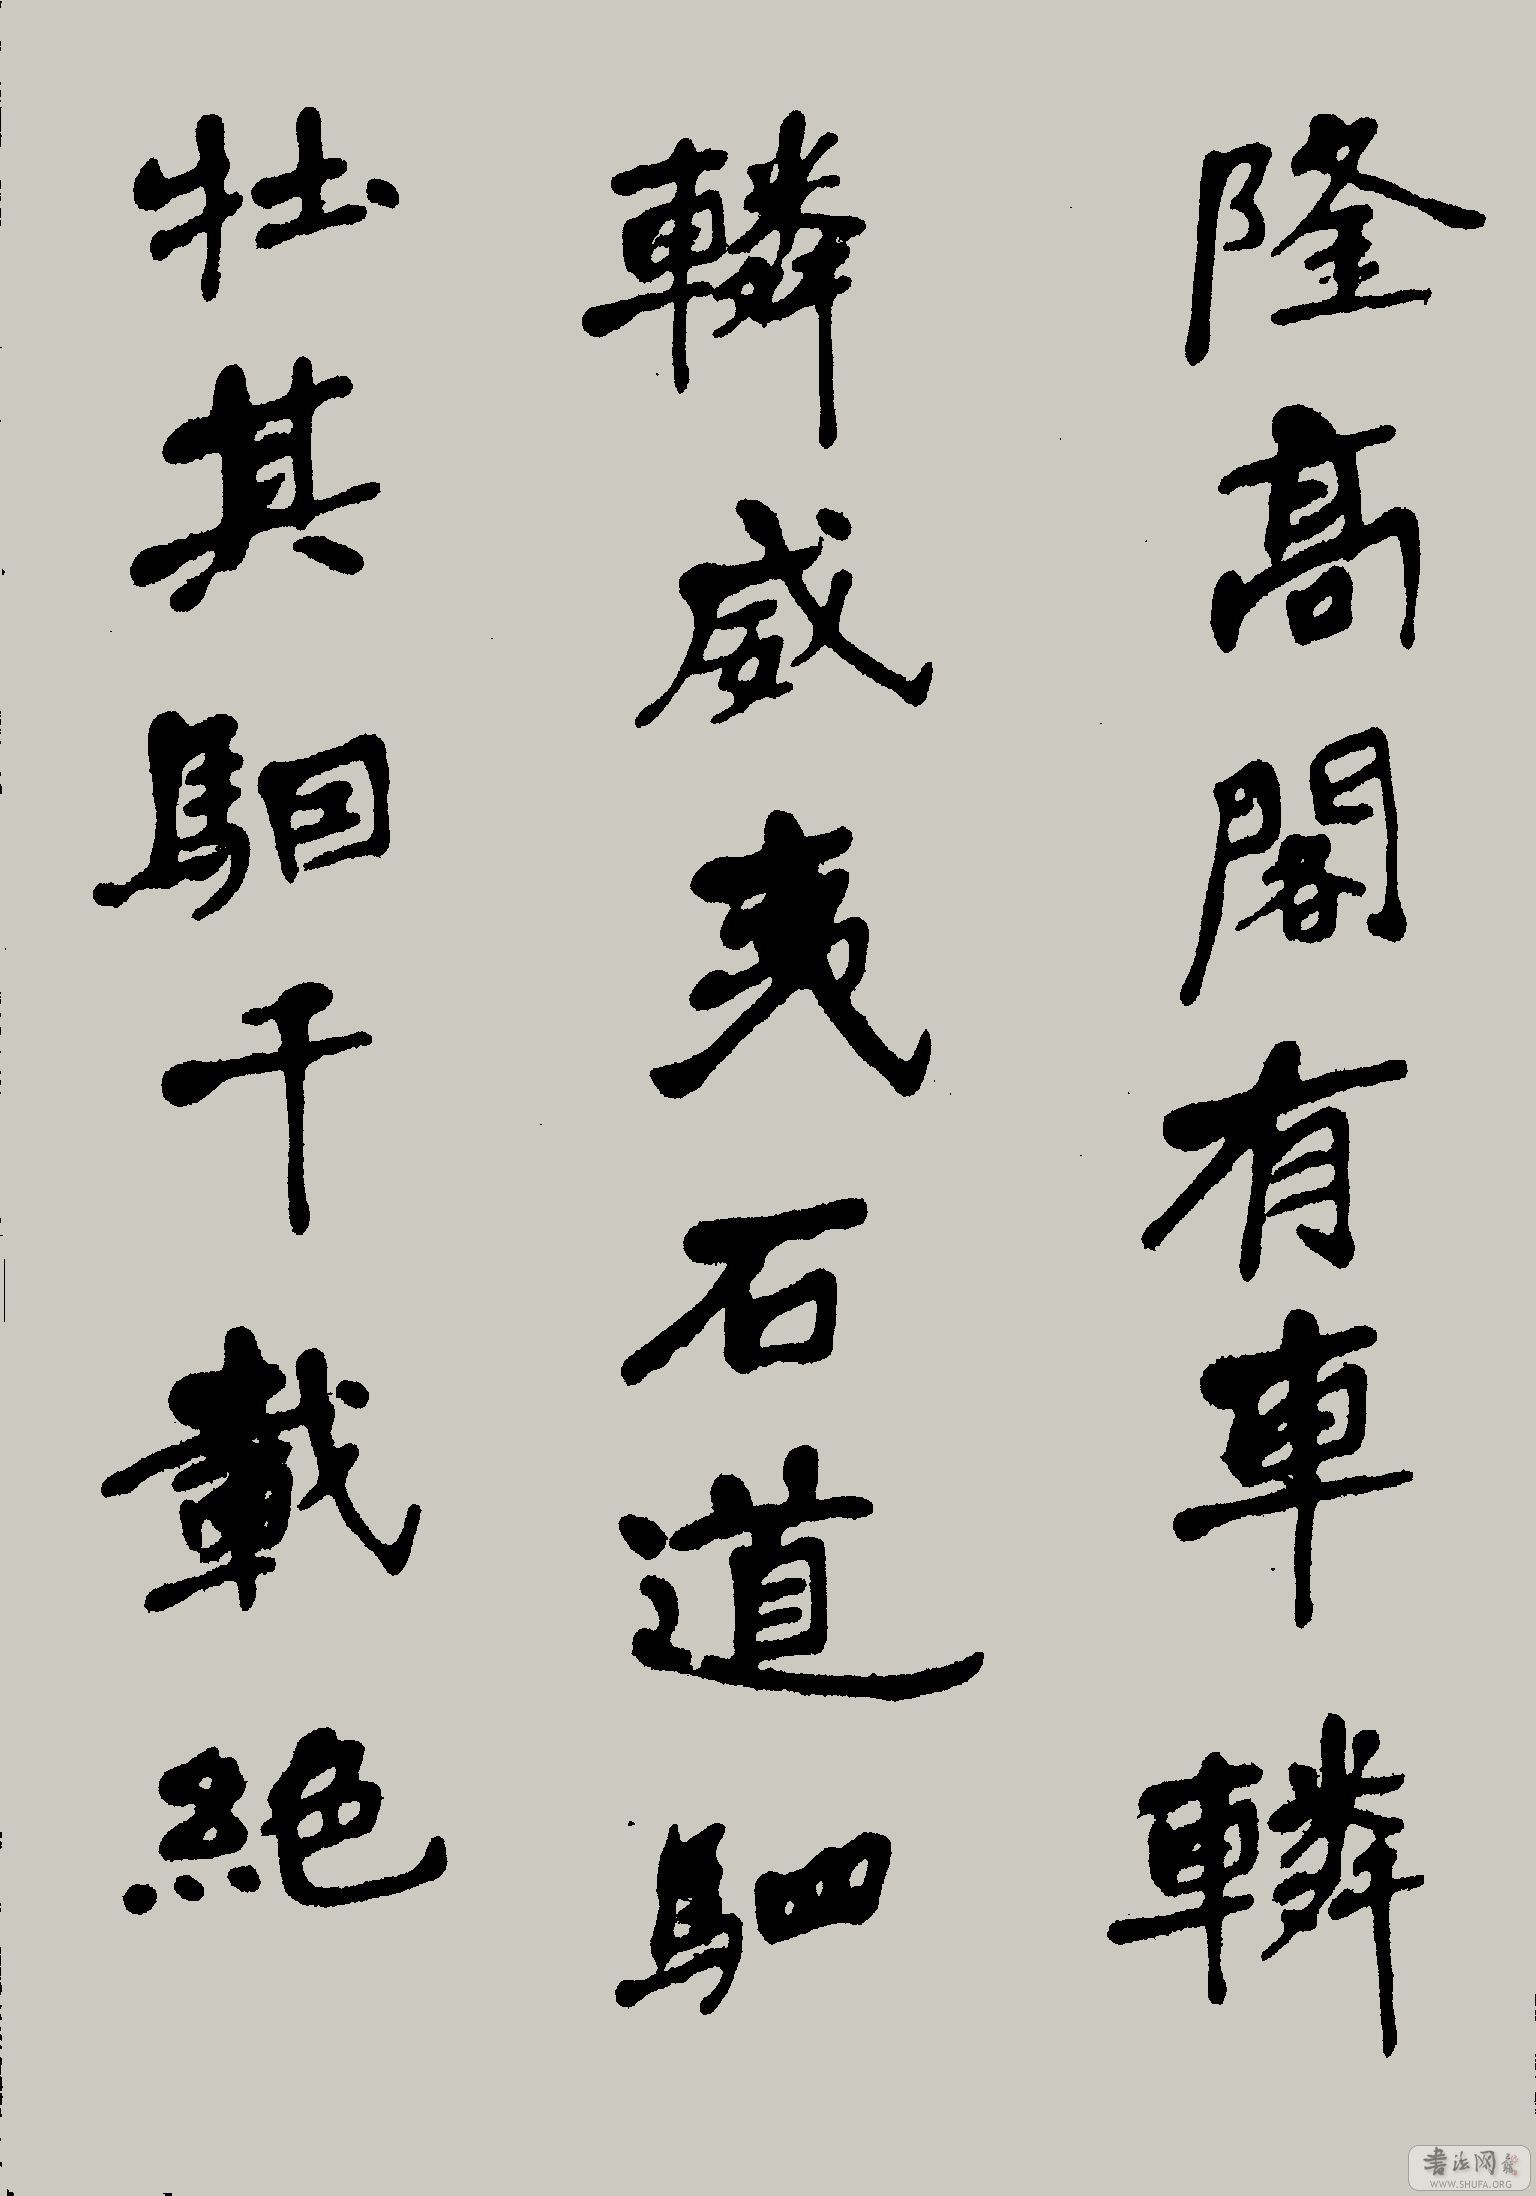 隆高閣有車轔
轔威夷石道駟
牡其駰干載絕
書法网
WWW.SHUFA.ORG